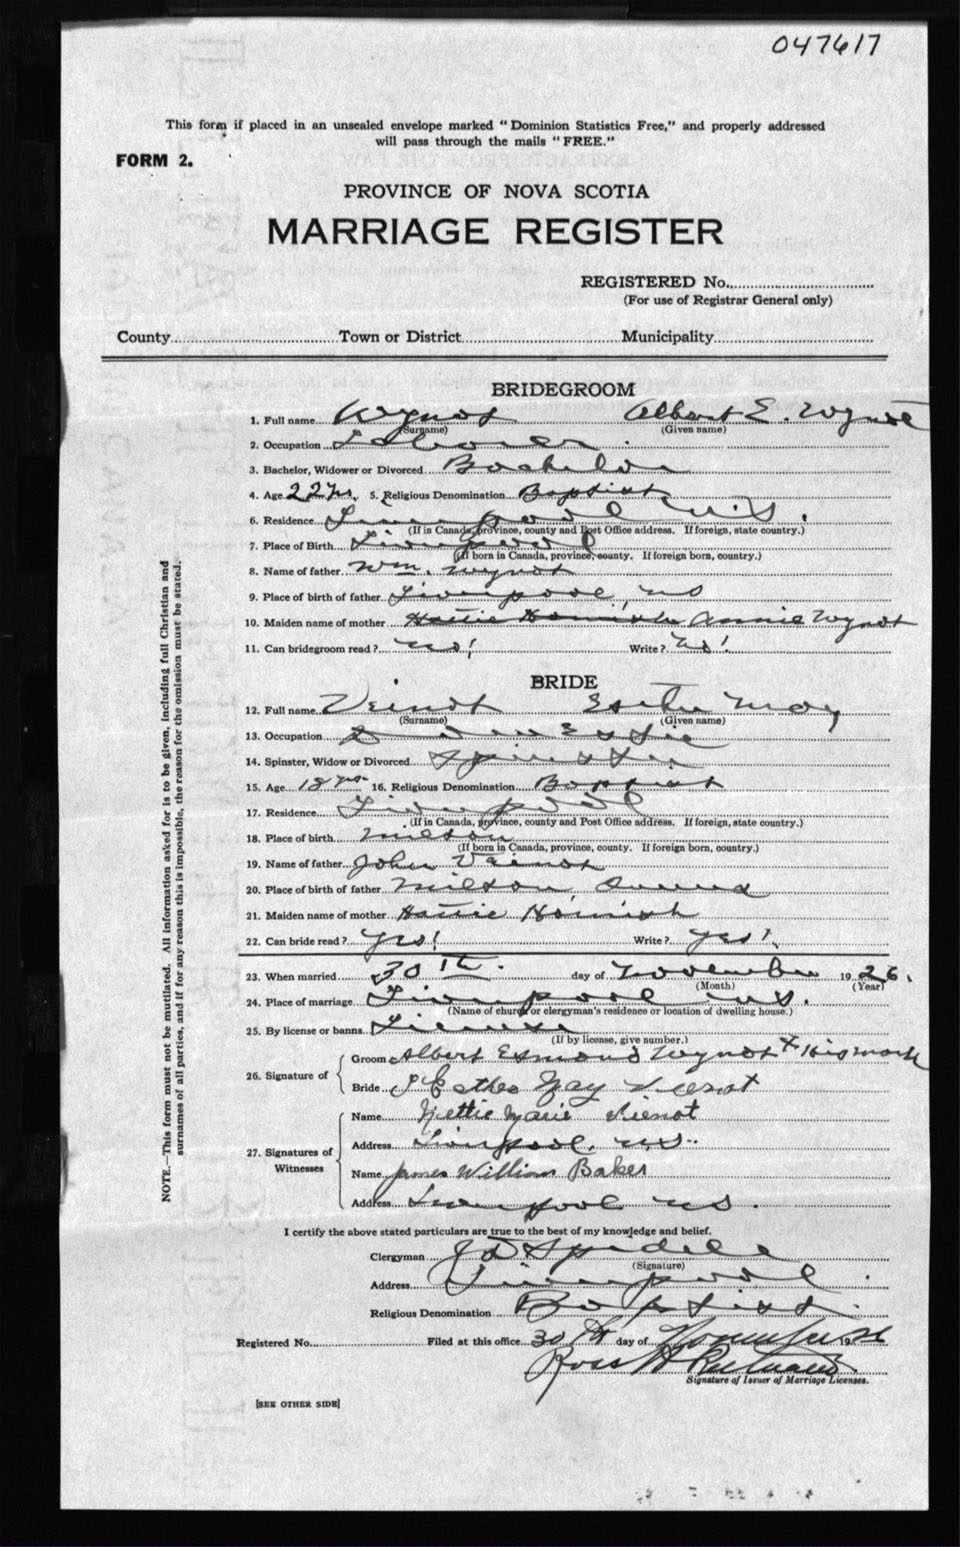 047617
This form if placed in an unsealed envelope marked "Dominion Statistics Free," and properly addressed
will pass through the mails "FREE."
FORM 2.
PROVINCE OF NOVA SCOTIA
MARRIAGE REGISTER
REGISTERED No.
(For use of Registrar General only)
County Town or District Municipality
BRIDEGROOM
1. Full name Wynot Albert E. Wynot
(Surname) (Given name)
2. Occupation Laborer
3. Bachelor, Widower or Divorced Bachelor
4. Age 22 yrs. 5. Religious Denomination Baptist
6. Residence Liverpool N.S.
(If in Canada, province, county and Post Office address. If foreign, state country.)
7. Place of Birth Liverpool
(If born in Canada, province, county. If foreign born, country.)
8. Name of father Wm. Wynot
9. Place of birth of father Liverpool, NS
10. Maiden name of mother Hattie Hamish Annie Wynot
11. Can bridegroom read? No! Write? No!
BRIDE
12. Full name Veinot Esther May
(Surname) (Given name)
13. Occupation Domestic
14. Spinster, Widow or Divorced Spinster
15. Age 18 yrs. 16. Religious Denomination Baptist
17. Residence Liverpool
(If in Canada, province, county and Post Office address. If foreign, state country.)
18. Place of birth Milton
(If born in Canada, province, county. If foreign born, country.)
19. Name of father John Veinot
20. Place of birth of father Milton
21. Maiden name of mother Hattie Hamish
22. Can bride read? Yes! Write? Yes!
23. When married 30th. day of November 1926.
(Month) (Year)
24. Place of marriage Liverpool NS.
(Name of church or clergyman's residence or location of dwelling house.)
25. By license or banns License
(If by license, give number.)
26. Signature of
Groom Albert Esmond Wynot X His mark
Bride Esther May Vienot
27. Signatures of Witnesses
Name Nettie Marie Vienot
Address Liverpool, N.S.
Name James William Baker
Address Liverpool NS.
I certify the above stated particulars are true to the best of my knowledge and belief.
Clergyman J D Spidell
(Signature)
Address Liverpool
Religious Denomination Baptist.
Registered No. Filed at this office 30th day of November 1926
Ross H
Signature of Issuer of Marriage Licenses.
[SEE OTHER SIDE]
NOTE.—This form must not be mutilated. All information asked for is to be given, including full Christian and
surnames of all parties, and if for any reason this is impossible, the reason for the omission must be stated.